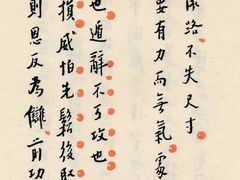 路不失尺寸
要有力而無氣
也遁辭不可攻也
損威怕先鬆後緊
則恩反為讎前功